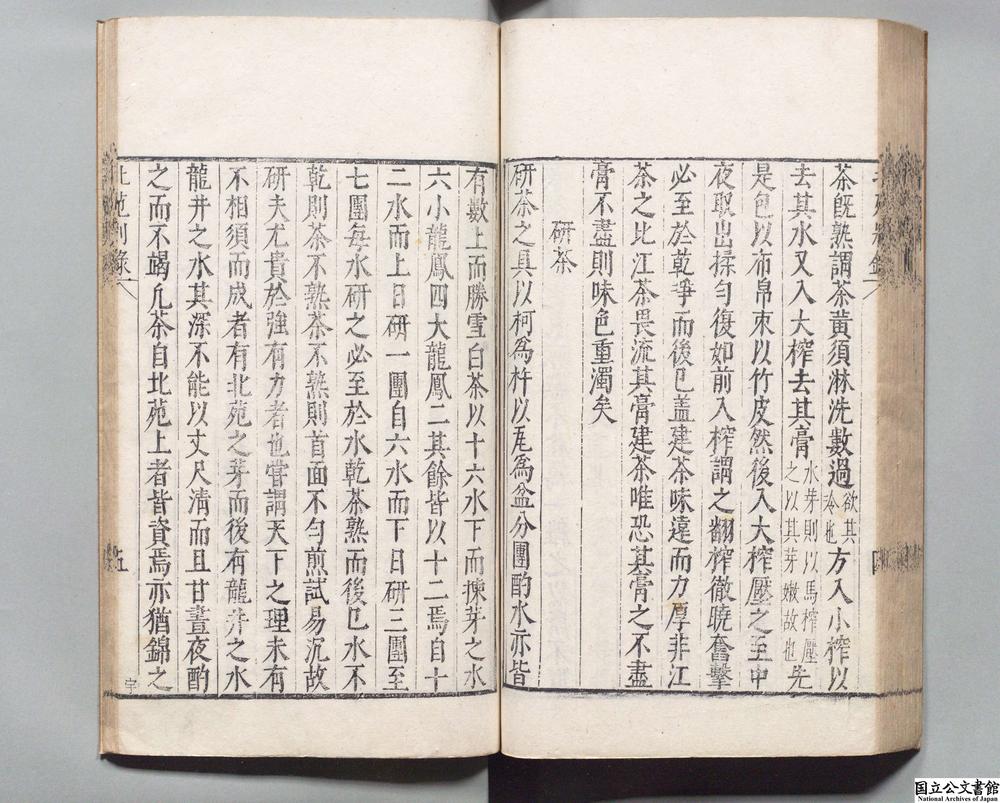 茶既熟謂茶黃須淋洗數過欲其冷也方入小榨以
去其水又入大榨去其膏水芽則以馬榨壓之以其芽嫩故也先
是包以布帛束以竹皮然後入大榨壓之至中
夜取出揉勻復如前入榨謂之翻榨徹曉奮擊
必至於乾淨而後已盖建茶味遠而力厚非江
茶之比江茶畏流其膏建茶唯恐其膏之不盡
膏不盡則味色重濁矣
研茶
研茶之具以柯爲杵以瓦爲盆分團酌水亦皆
有數上而勝雪白茶以十六水下而揀芽之水
六小龍鳳四大龍鳳二其餘皆以十二焉自十
二水而上日研一團自六水而下日研三團至
七團每水研之必至於水乾茶熟而後已水不
乾則茶不熟茶不熟則首面不勻煎試易沉故
研夫尤貴於強有力者也嘗謂天下之理未有
不相須而成者有北苑之芽而後有龍井之水
龍井之水其深不能以丈尺清而且甘晝夜酌
之而不竭凡茶自北苑上者皆資焉亦猶錦之
北苑別錄
五
字
国立公文書館
National Archives of Japan